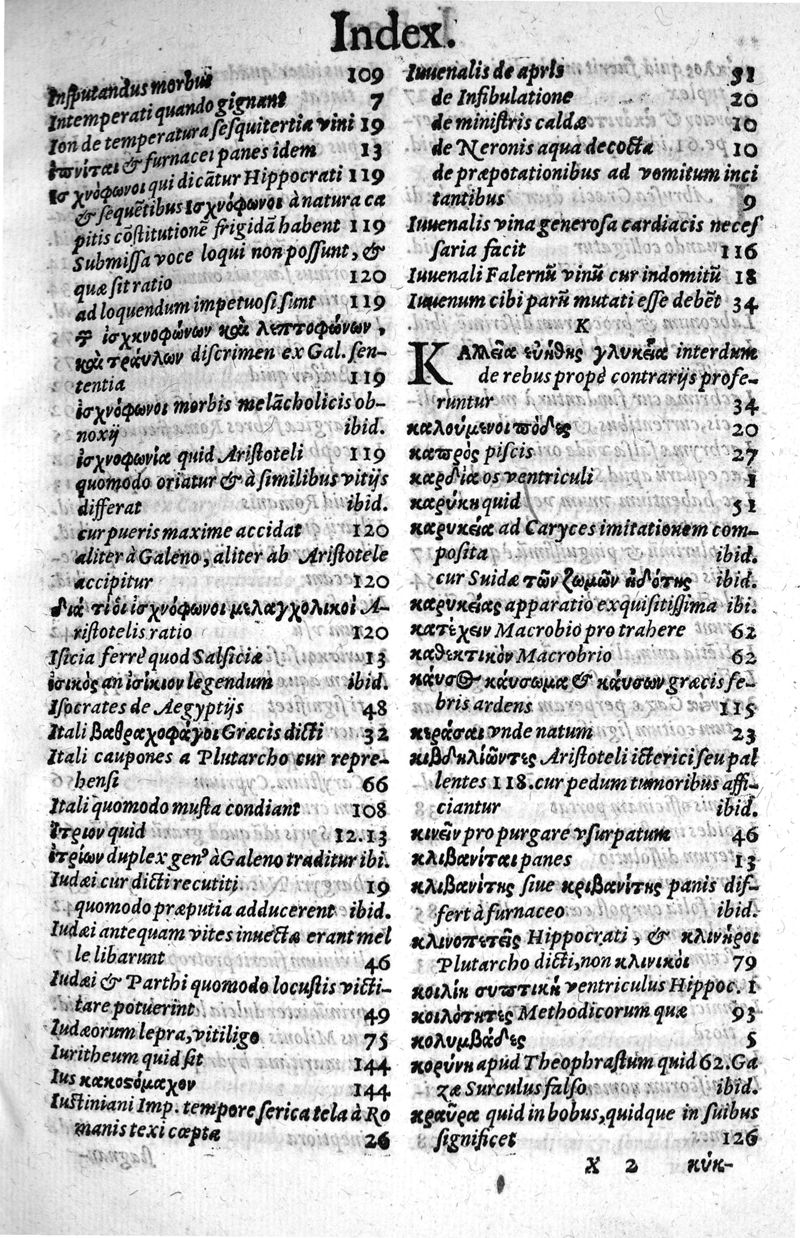 Index.
Insputandus morbus 109
Intemperati quando gignant 7
Ion de temperatura sesquitertia vini 19
ἰπνίται & furnacei panes idem 13
ἰσχνόφωνοι qui dicātur Hippocrati 119
& sequētibus ἰσχνόφωνοι à natura ca
pitis cōstitutionē frigidā habent 119
Submissa voce loqui non possunt, &
quæ sit ratio 120
ad loquendum impetuosi sunt 119
ἰσχνοφώνων καὶ λεπτοφώνων,
καὶ τραύλων discrimen ex Gal. sen-
tentia 119
ἰσχνόφωνοι morbis melācholicis ob-
noxij ibid.
ἰσχνοφωνία quid Aristoteli 119
quomodo oriatur & à similibus vitijs
differat ibid.
cur pueris maxime accidat 120
aliter à Galeno, aliter ab Aristotele
accipitur 120
διὰ τί οἱ ἰσχνόφωνοι μελαγχολικοί A-
ristotelis ratio 120
Isicia ferrè quod Salsiciæ 13
ἰσικὸς an ἰσίκιον legendum ibid.
Isocrates de Aegyptijs 48
Itali βαθραχοφάγοι Græcis dicti 32
Itali caupones a Plutarcho cur repre-
hensi 66
Itali quomodo musta condiant 108
ἴτριον quid 12.13
ἰτρίων duplex genꝰ à Galeno traditur ibi.
Iudæi cur dicti recutiti 19
quomodo præputia adducerent ibid.
Iudæi antequam vites inuectæ erant mel
le libarunt 46
Iudæi & Parthi quomodo locustis victi-
tare potuerint 49
Iudæorum lepra, vitiligo 75
Iuritheum quid sit 144
Ius κακοσόμαχον 144
Iustiniani Imp. tempore serica tela à Ro
manis texi cœpta 26
Iuuenalis de apris 51
de Infibulatione 20
de ministris caldæ 10
de Neronis aqua decocta 10
de præpotationibus ad vomitum inci
tantibus 9
Iuuenalis vina generosa cardiacis neces
saria facit 116
Iuuenali Falernū vinū cur indomitū 18
Iuuenum cibi parū mutati esse debēt 34
K
ΚΑλλεῖα εὐήθης γλυκεῖα interdum
de rebus propè contrarijs profe-
runtur 34
καλούμενοι πόδες 20
κάπρος piscis 27
καρδία os ventriculi 1
καρύκη quid 51
καρυκεία ad Caryces imitationem com-
posita ibid.
cur Suidæ τῶν ζωμῶν ἡδότης ibid.
καρυκείας apparatio exquisitissima ibi.
κατέχειν Macrobio pro trahere 62
καθεκτικὸν Macrobrio 62
καῦσος καύσωμα & καύσων græcis fe-
bris ardens 115
κεράσαι vnde natum 23
κιβδηλιῶντες Aristoteli icterici seu pal
lentes 118. cur pedum tumoribus affi-
ciantur ibid.
κινεῖν pro purgare vsurpatum 46
κλιβανίται panes 13
κλιβανίτης siue κριβανίτης panis dif-
fert à furnaceo ibid.
κλινοπετεῖς Hippocrati, & κλινήροι
Plutarcho dicti, non κλινικοὶ 79
κοιλίη συπτικὴ ventriculus Hippoc. 1
κοιλότητες Methodicorum quæ 93
κολυμβάδες 5
κορύνη apud Theophrastum quid 62. Ga
zæ Surculus falso ibid.
κραῦρα quid in bobus, quidque in suibus
significet 126
X 2 κύκ-